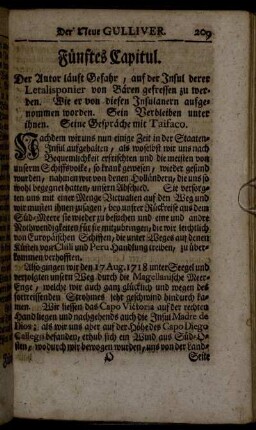 Der Neue GULLIVER. 209
Fünftes Capitul.
Der Autor läuft Gefahr, auf der Insul derer
Letalisponier von Bären gefressen zu wer-
den. Wie er von diesen Insulanern aufge-
nommen worden. Sein Verbleiben unter
ihnen. Seine Gespräche mit Taifaco.
Nachdem wir uns einige Zeit in der Staaten-
Insul aufgehalten, als woselbst wir uns nach
Bequemlichkeit erfrischten und die meisten von
unserm Schiffsvolke, so krank gewesen, wieder gesund
wurden, nahmen wir von denen Holländern, die uns so
wohl begegnet hatten, unsern Abschied. Sie versorg-
ten uns mit einer Menge Victualien auf den Weg und
wir musten ihnen zusagen, bey unsrer Rückreise aus dem
Süd-Meere sie wieder zu besuchen und eine und andre
Nothwendigkeiten für sie mitzubringen, die wir leichtlich
von Europäischen Schiffen, die unter Weges auf denen
Küsten von Chili und Peru Handlung treiben, zu über-
kommen verhofften.
Also gingen wir den 17 Aug. 1718 unter Seegel und
verfolgten unsern Weg durch die Magellanische Meer-
Enge, welche wir auch ganz glücklich und wegen des
fortreissenden Strohmes sehr geschwind hindurch ka-
men. Wir liessen das Capo Victoria auf der rechten
Hand liegen und nachgehends auch die Insul Madre de
Dios; als wir uns aber auf der Höhe des Capo Diego
Gallego befanden, erhub sich ein Wind aus Süd-
wodurch wir bewogen wurden, uns von der Land-
O Seite